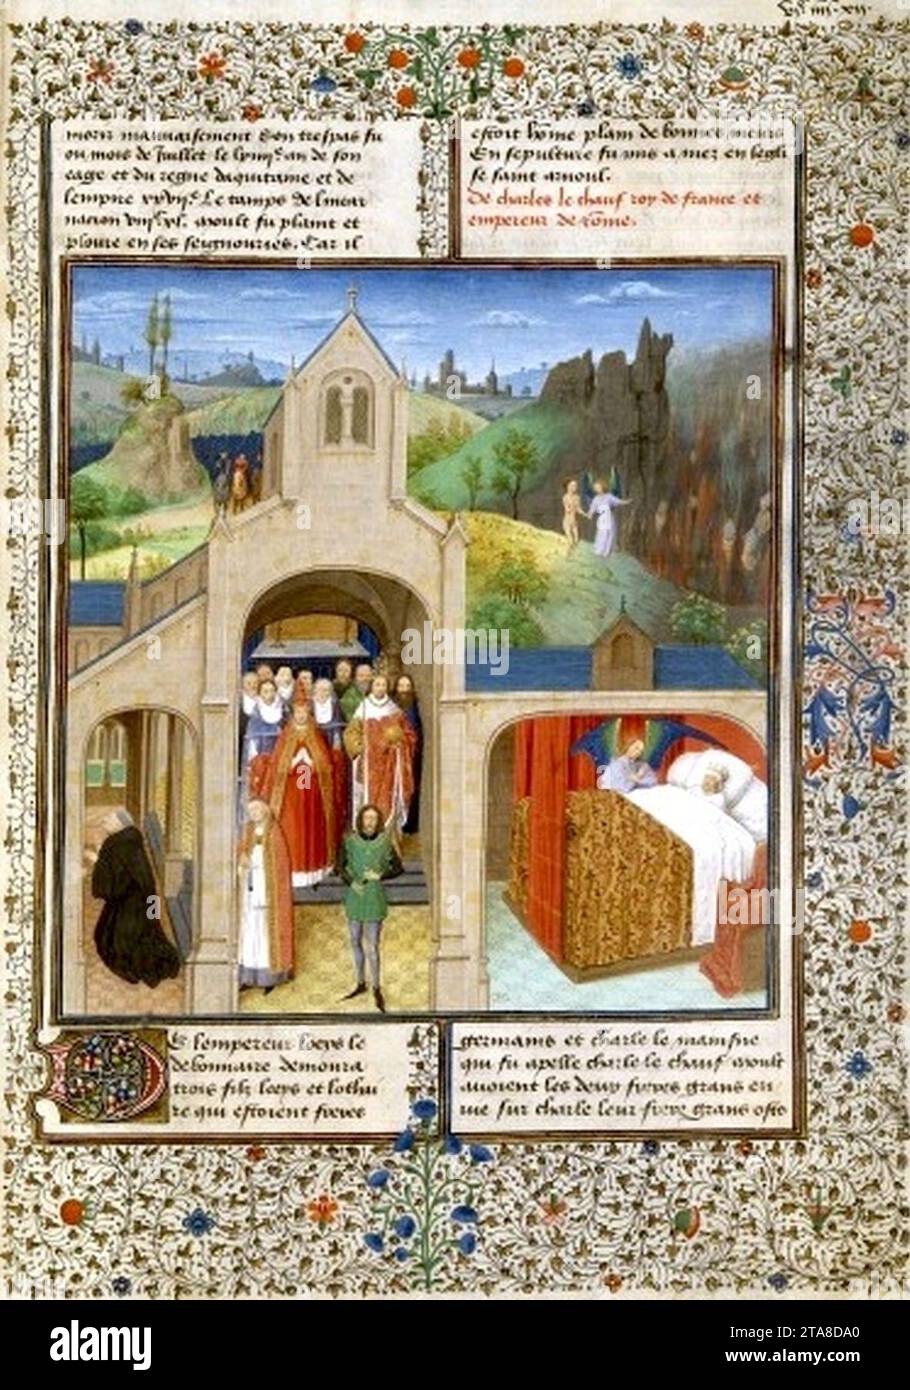 mort mainarsement Son trespas fu
ou mois de Juillet le lxiiij.e an de son
eage et du regne daquitaine et de
lempire xxvij.e Le tamps de lincar
nacion viij.c xl. moult fu plaint et
ploure en ses seignouries. Car il
estoit home plain de bonnes meurs
En sepulture fu mis a mez en legli
se saint arnoul.
De charles le chauf roy de france et
empereur de rome.
De lempereur loeys le
debonnaire demoura
trois filz loeys et lothai
re qui estoient freres
germains et charle le mainsne
qui fu apelle charle le chauf moult
auoient les deux freres grans en
uie sur charle leur frere grans ostz
alamy
Image ID: 2TA8DA0
www.alamy.com